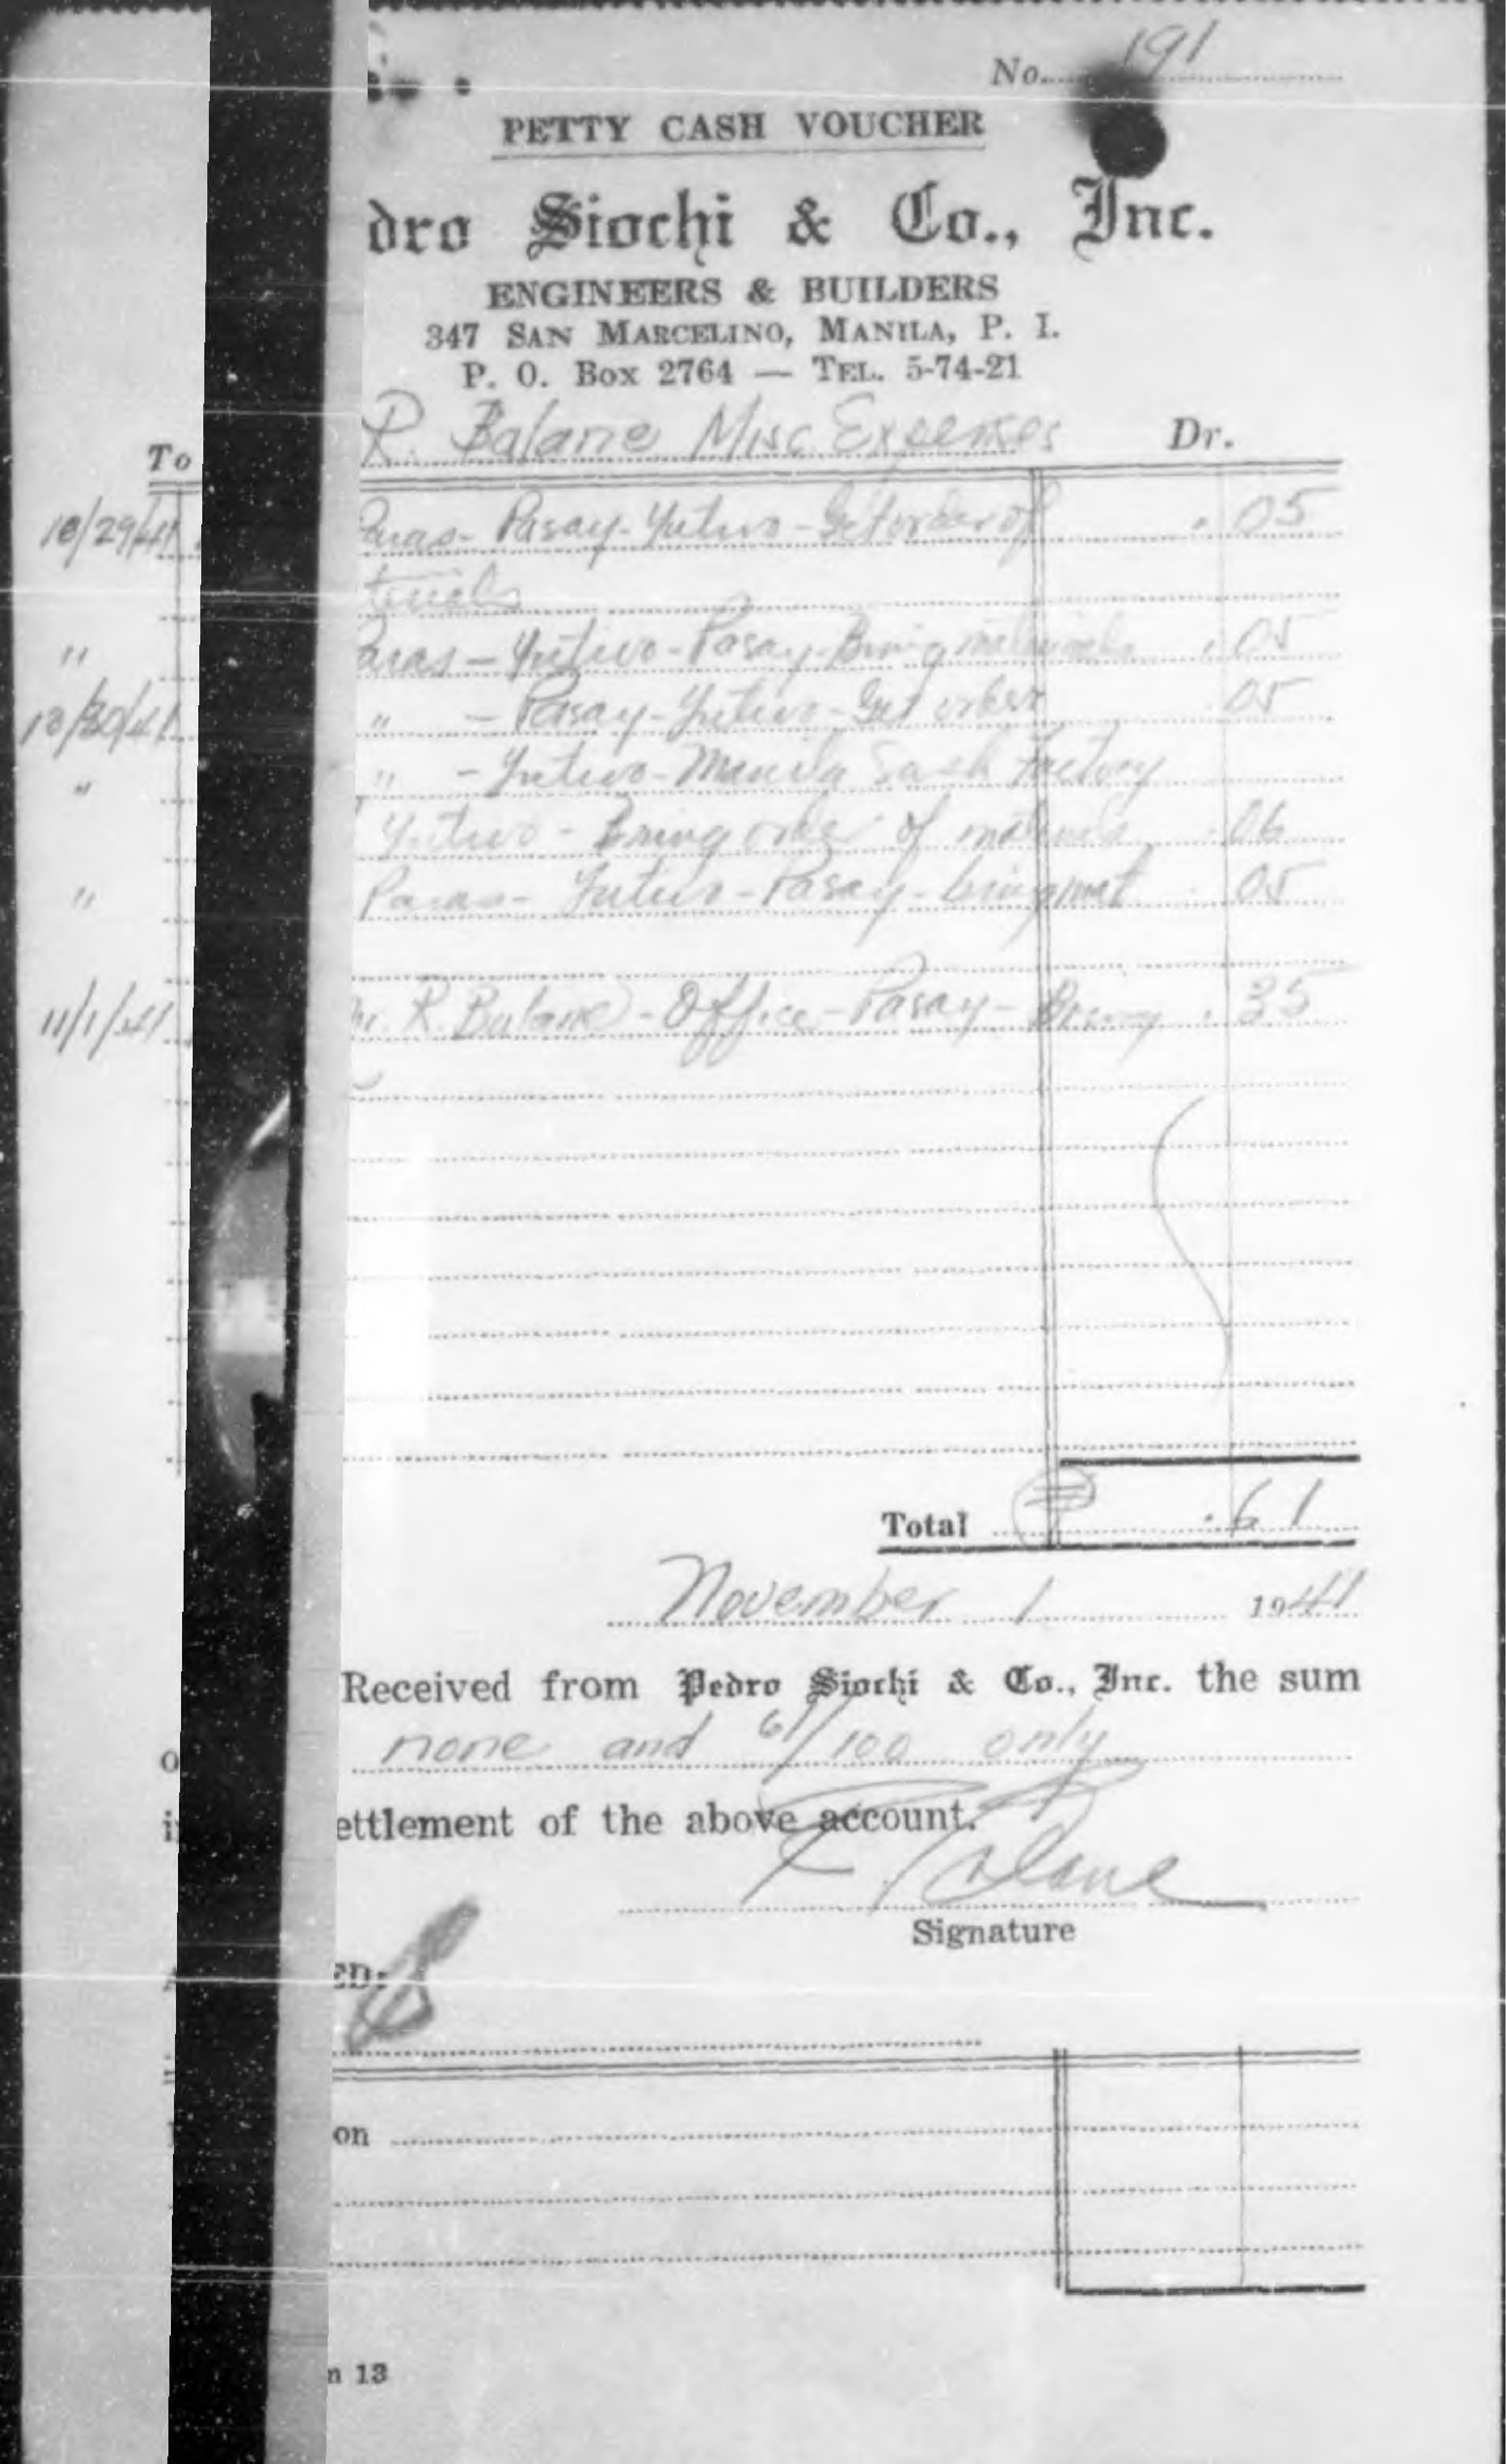 No. 191
PETTY CASH VOUCHER
dro Siochi & Co., Inc.
ENGINEERS & BUILDERS
347 SAN MARCELINO, MANILA, P. I.
P. O. Box 2764 — TEL. 5-74-21
To R. Balane Misc Expenses Dr.
10/29/41 Paras - Pasay - Yutivo - Get order of .05
terials
" aras - Yutivo - Pasay - Bring materials .05
10/30/41 " - Pasay - Yutivo - Get order .05
" " - Yutivo - Manila Sash Factory
Yutivo - Bring order of materials .06
" Paras - Yutivo - Pasay - bring mat .05
11/1/41 r. R. Balane - Office - Pasay - .35
Total ₱ .61
November 1 1941
Received from Pedro Siochi & Co., Inc. the sum
o none and 61/100 only
i ettlement of the above account.
R Balane
Signature
ED:
on
m 13